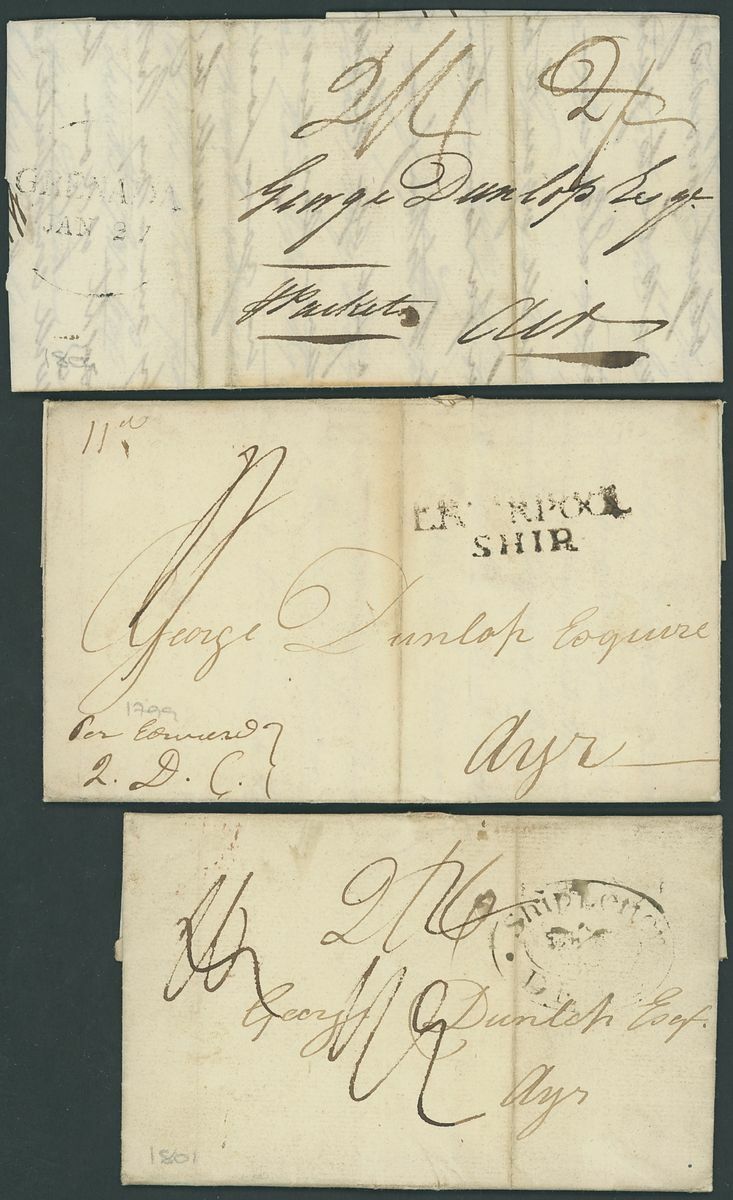 2/4 2/
GRENADA
JAN 27
George Dunlop Esqr.
Packet
Air
11d
LIVERPOOL
SHIP
George Dunlop Esquire
1799
Per
2. D. C.
Ayr
Ship Letter
George Dunlop Esqr.
Ayr
1801